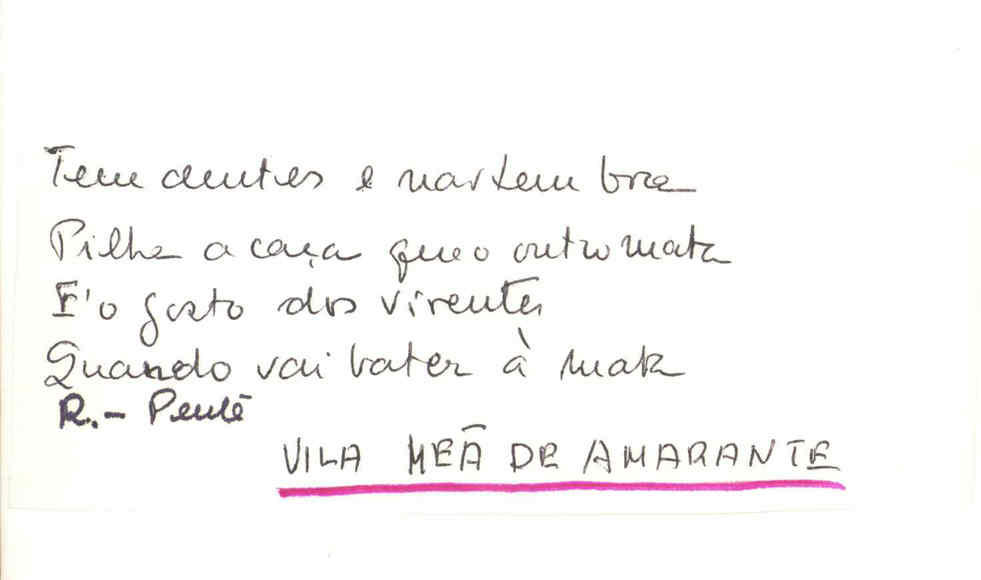 Tem dentes e não tem boca
Pilha a caça que o outro mata
É o gosto dos viventes
Quando vai bater à mata
R.- Pente
VILA MEÃ DE AMARANTE